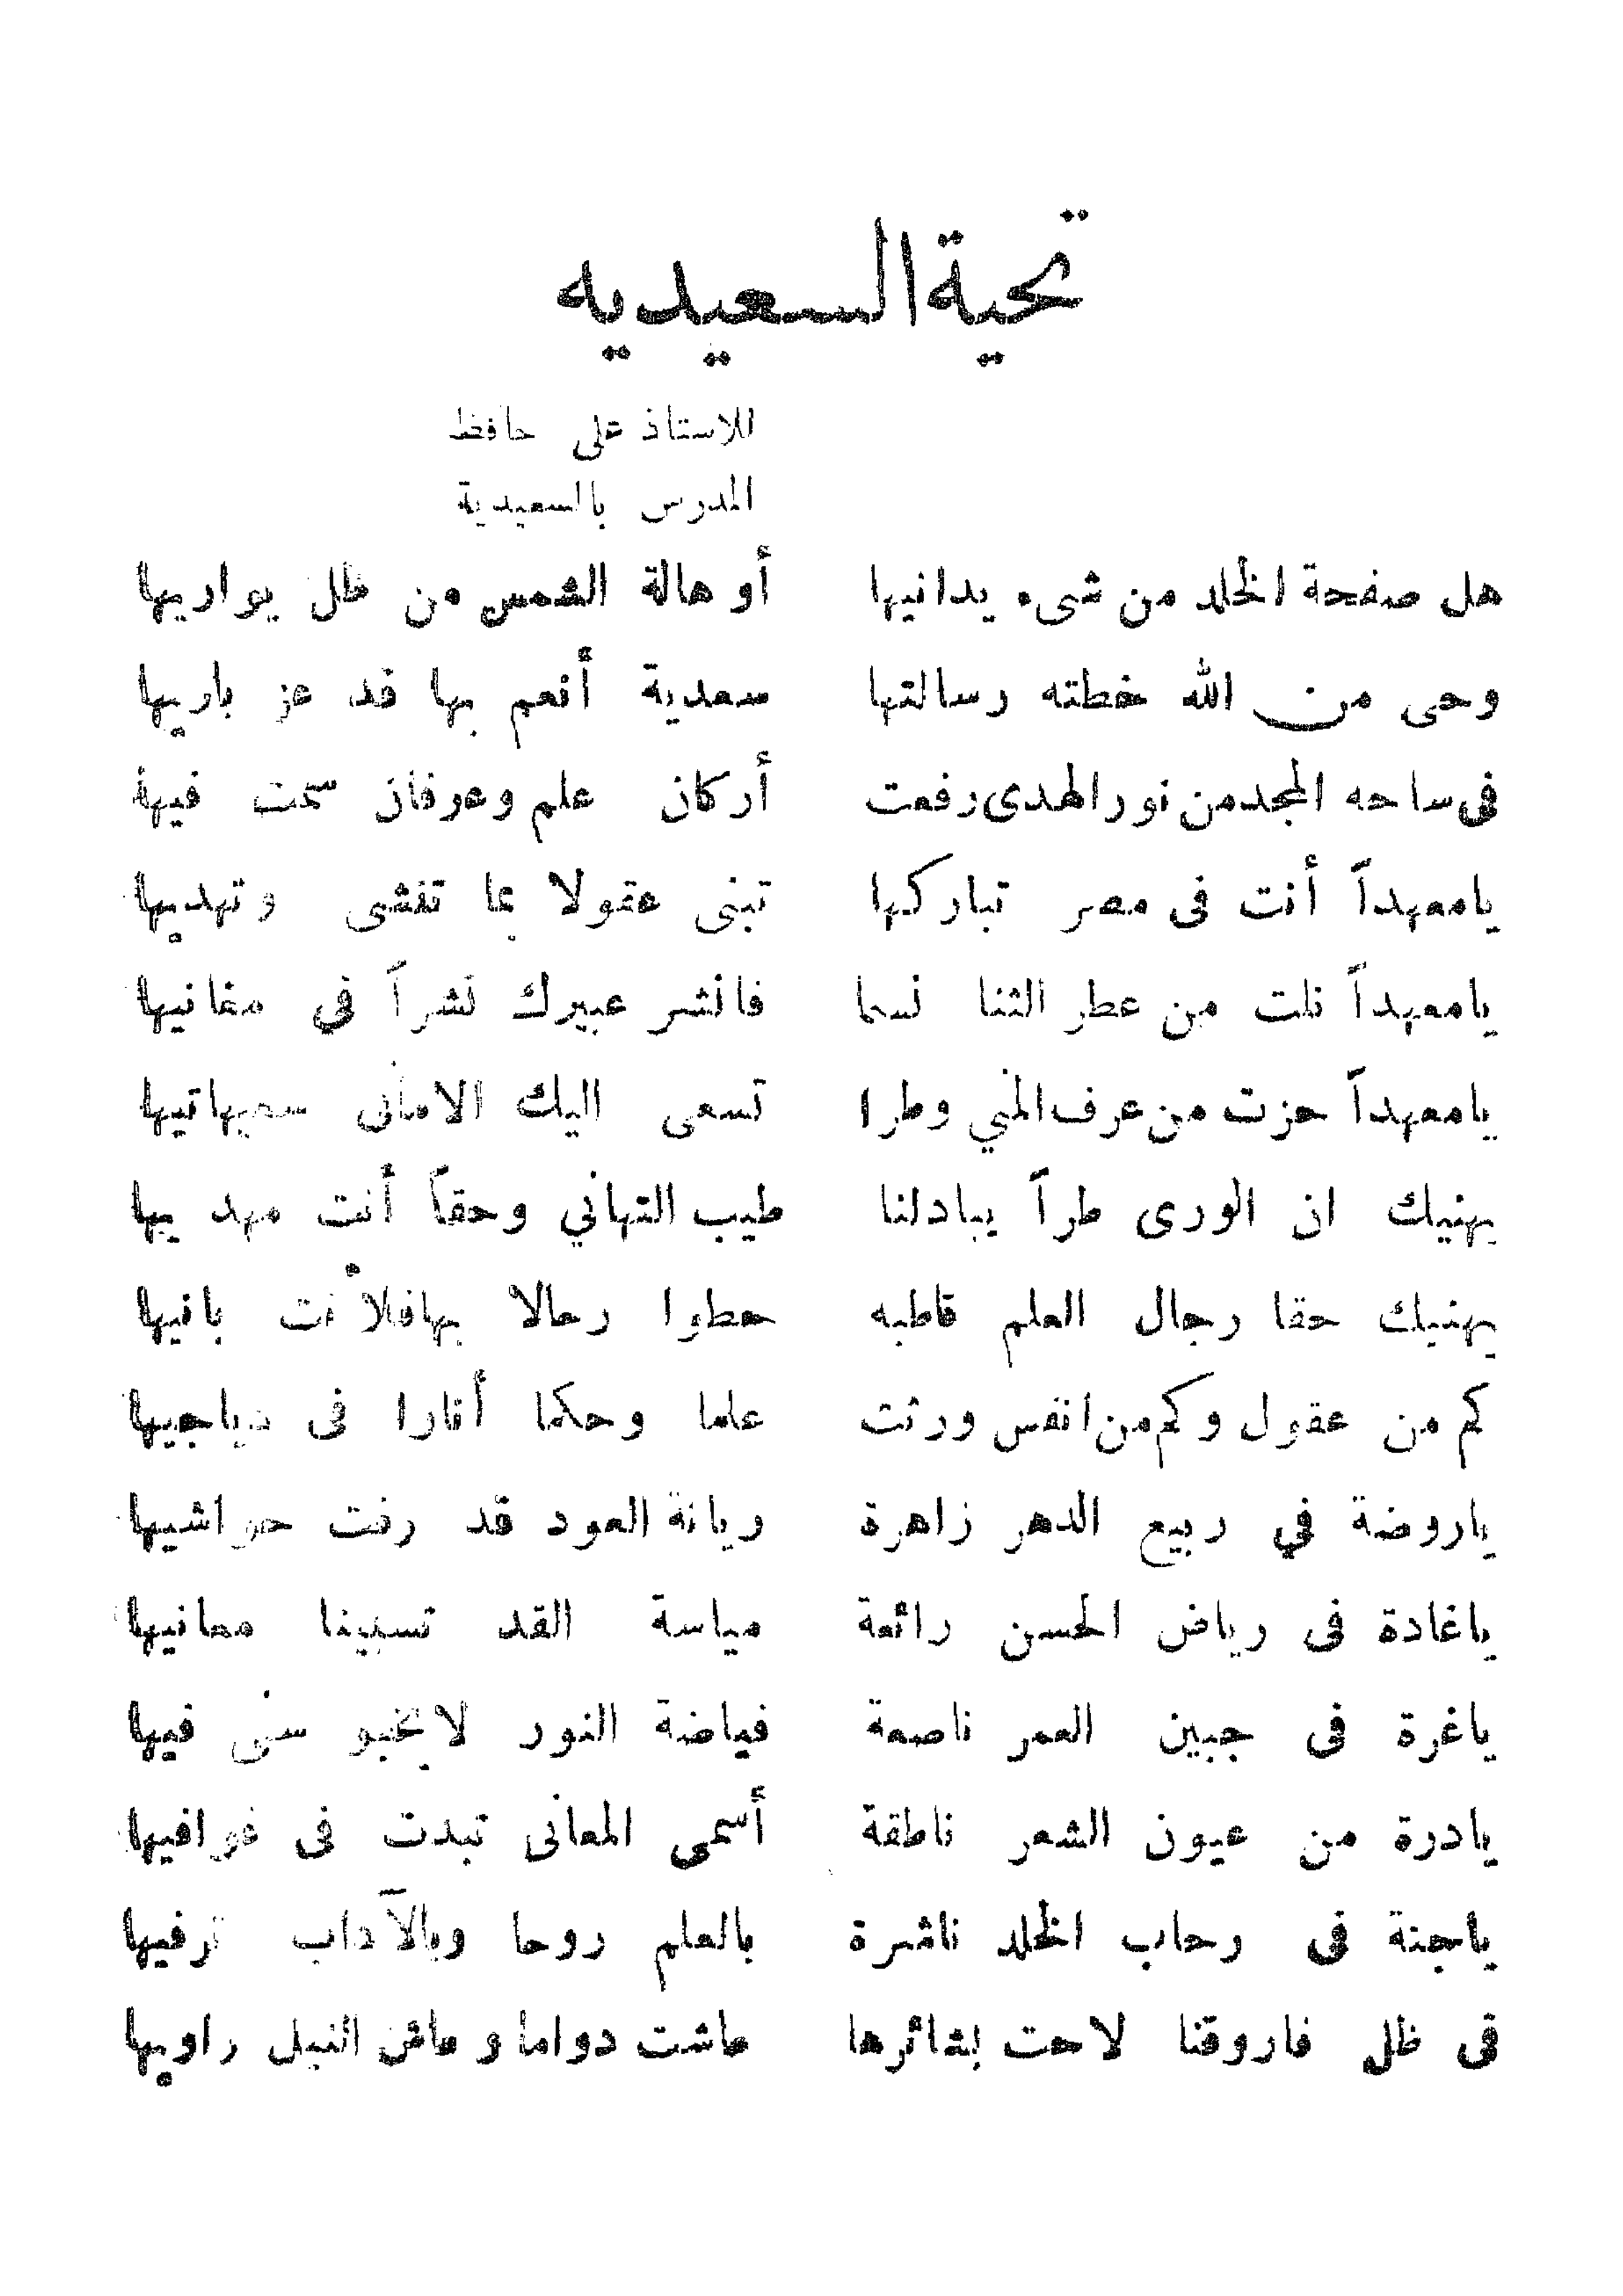 تحية السعيديه
للاستاذ على حافظ
المدرس بالسعيدية
هل صفحة الخلد من شىء يدانيها أو هالة الشمس من ظل يواريها
وحى من الله خطته رسالتها سعدية أنعم بها قد عز باريها
فى ساحه المجد من نور الهدى رفعت أركان علم وعرفان سمت فيها
يامعهداً أنت فى مصر تباركها تبنى عقولا بما تفشى وتهديها
يامعهداً نلت من عطر الثنا نسما فانشر عبيرك نشراً في مغانيها
يامعهداً حزت من عرف المني وطرا تسعى اليك الامانى
يهنيك ان الورى طراً يبادلنا طيب التهاني وحقاً أنت مهديها
يهنيك حقا رجال العلم قاطبه حطوا رحالا بها بانيها
كم من عقول وكم من انفس ورثت علما وحكما أنارا فى دياجيها
ياروضة في ربيع الدهر زاهرة ريانة العود قد رفت حواشيها
ياغادة فى رياض الحسن رائعة مياسة القد تسبينا معانيها
ياغرة فى جبين العمر ناصعة فياضة النور لايخبو سنى فيها
يادرة من عيون الشعر ناطقة أسمى المعانى تبدت فى
ياجنة فى رحاب الخلد ناشرة بالعلم روحا وبالآداب ترفيها
فى ظل فاروقنا لاحت بشائرها عاشت دواما وعاش النيل راويها